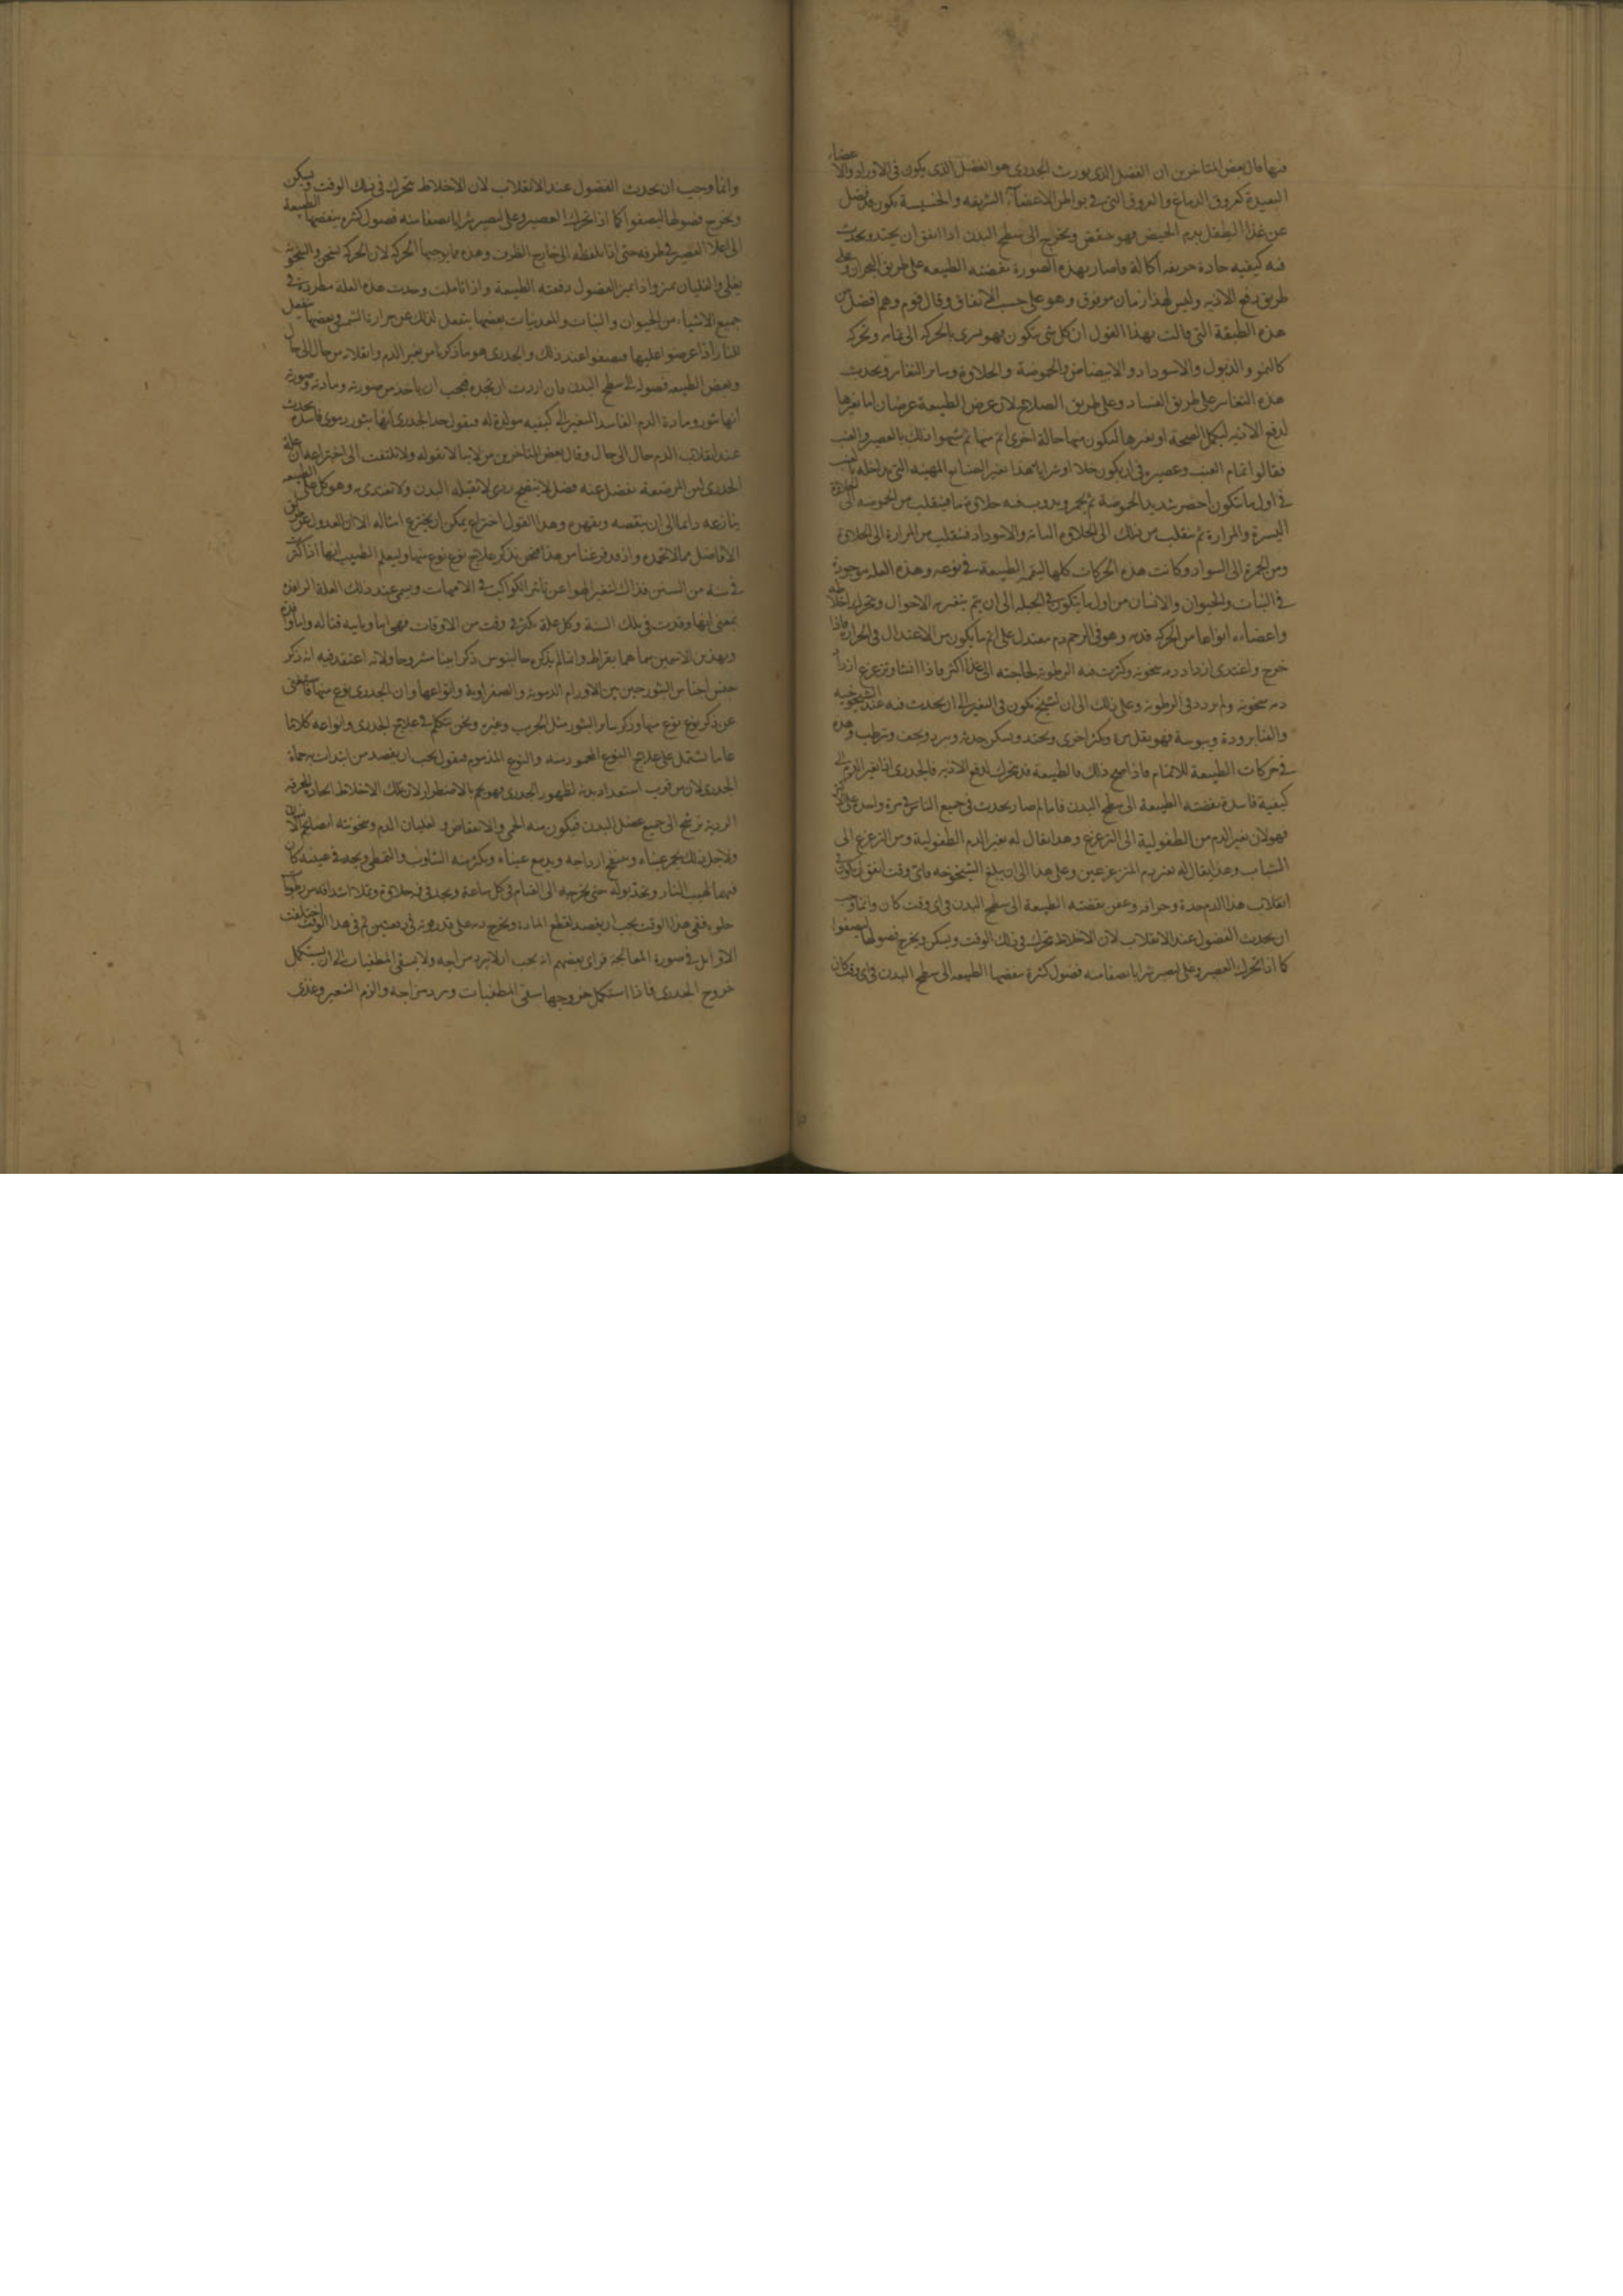 فيها قال بعض المتاخرين ان الفضل الذى يورث الجدرى هو الفضل الذى يكون فى الاوراد والاعضاء
البعيدة كعروق الدماغ والعروق التى فى بواطن الاعضاء الشريفه والخسيسة يكون قد فضل
عن غذا الطفل بدم الحيض فهو ينقض ويخرج الى سطح البدن اذا اتفق ان يحتد ويحدث
فيه كيفيه حادة حريفه أكالة فاصار بهذه الصورة نقضته الطبيعه على طريق البحران وعلى
طريق دفع الاذيه وليس لهذا زمان موقوف وهو على حسب الاتفاق وقال قوم وهم افضل من
هذه الطبقة التى قالت بهذا القول ان كل شى يتكون فهو يسرى بالحركه الى تمامه وتحركه
كالنمو والذبول والاسوداد والابيضاض والحموضة والحلاوة وساير التغاير ويحدث
هذه التغاير على طريق الفساد وعلى طريق الصلاح لان عرض الطبيعة عرضان اما بغيرها
لدفع الاذيه ليكمل الصحة او بغيرها لتكون منها حالة اخرى اتم منها ثم شبهوا ذلك بالعصير والعنب
فقالوا تمام العنب وعصيره فى ان يكون خلا او شرابا بهذا
فى اول ما يتكون اخضر شديد الحموضة ثم يحمر ويدوب فيه حلاوة ما فينقلب من الحموضه الى الحلاوة
اليسيرة والمرارة ثم ينقلب من ذلك الى الحلاوة التامة والاسوداد فينقلب من المرارة الى الحلاوة
ومن الحمرة الى السواد وكانت هذه الحركات كلها ليتم الطبيعة فى نوعه وهذه العله موجودة
فى النبات والحيوان والانسان من اول ما يتكون فى الجبله الى ان يتم يتغير به الاحوال وتحرك اخلاطه
واعضاءه انواعا من الحركه فدمه وهو فى الرحم دم معتدل على اتم ما يكون من الاعتدال فى الحرارة فاذا
خرج واغتدى ازداد دمه سخونة وكثرت فيه الرطوبة لحاجته الى غذا اكثر فاذا انشا وترعرع ازداد
دمه سخونة ولم يزدد فى الرطوبة وعلى ذلك الى ان يشيخ يكون فى التغير الى ان يحدث فيه عند الشيخوخيه
والفنا برودة ويبوسة فهو يقل مرة ويكثر اخرى ويحتد ويسكن حدته ويبرد ويجف ويترطب وهذه
فى حركات الطبيعة للاتمام فاذا صح ذلك فالطبيعة قد تتحرك لدفع الاذيه فالجدرى اذا تغير الدم الى
كيفية فاسدة نقضته الطبيعة الى سطح البدن فاما لم صار يحدث فى جميع الناس مرة واحدة
فهو لان تغير الدم من الطفولية الى الترعرع وهذا يقال له تغير الدم الطفولية ومن الترعرع الى
الشباب وهذا يقال له تغير دم المترعرعين وعلى هذا الى ان يبلغ الشيخوخه فاى وقت اتفق ان يكون فى
انقلاب هذا الدم حدة وحرافه وعفن نقضته الطبيعة الى سطح البدن فى اى وقت كان وانما وجب
ان يحدث الفضول عند الانقلاب لان الاخلاط تتحرك فى ذلك الوقت ويسكن ويخرج فضولها ليصفوا
كما اذا تحرك العصير وغلى ليصير شرابا يصفا منه فضول كثيرة ينقضها الطبيعه الى سطح البدن فى اى وقت كان
وانما وجب ان يحدث الفضول عند الانقلاب لان الاخلاط تتحرك فى ذلك الوقت ويسكن
ويخرج فضولها ليصفوا كما اذا تحرك العصير وغلى ليصير شرابا يصفا منه فضول كثيره ينقضها الطبيعة
الى اعلا العصير فى ظرفه حتى اذا يلفظه الى خارج الظرف وهذه مما يوجبها الحركه لان الحركه تسخن والسخونة
يغلى والغليان يميز واذا تميز الفضول دفعته الطبيعة واذا تاملت وجدت هذه العلة مطردة فى
جميع الاشياء من الحيوان والنبات والمعدنيات بعضها ينفعل لذلك عن حرارة الشمس وبعضها ينفعل
للنار اذا عرضوا عليها فيصفوا عند ذلك والجدرى هو ما ذكرنا من تغير الدم وانقلابه من حال الى حال
ونفض الطبيعه فضوله الى سطح البدن فان اردت ان تحده فيجب ان ياخذ من صورته ومادته وصورته
انها بثور ومادة الدم الفاسد المتغير الى كيفيه مولدة له فنقول حد الجدرى انها بثور دموى فاسدة يحدث
عند انقلاب الدم حال الى حال وقال بعض المتاخرين من لا يبالا بقوله ولا يلتفت الى اختراعه ان علة
الجدرى لبن المرضعة يفضل عنه فضل لا ينضج ردى لا تقبله البدن ولا تغتدى به وهو كل على الطبيعه
ينازعه دايما الى ان ينقصه ويقهره وهذا القول اختراع يمكن ان يخترع امثاله الا ان العدول عن طريق
الافاضل مما لا نحمده واذ قد فرغنا من هذا فنحن نذكر علاج نوع نوع منها وليعلم الطبيب انها اذا كثرت
فى سنة من السنين فذاك لتغير الهوا عن تاثير الكواكب فى الامهات ويسمى عند ذلك العلة الوافدة
بمعنى انها وفدت فى تلك السنة وكل علة يكثر فى وقت من الاوقات فهو اما وبايية قتاله واما وافدة
وبهذين الاسمين سماهما بقراط وانما لم يذكره جالينوس ذكرا مبينا مشروحا ولانه اعتقد فيه انه ذكر
جنس اجناس البثور حين بين الاورام الدموية والصفراوية وانواعها وان الجدرى نوع منها فاستغنى
عن ذكر نوع نوع منها وذكر ساير البثور مثل الجرب وغيره ونحن نتكلم فى علاج الجدرى وانواعه كلاما
عاما يشتمل على علاج النوع المحمود منه والنوع المذموم فنقول يجب ان يفصد من ابتدات به حماة
الجدرى لان من قرب استعداد بدنه لظهور الجدرى فهو يحم بالاضطرار لان تلك الاخلاط الحادة المحرقه
الردية ترشح الى جميع عضل البدن فيكون منه الحمى والانتفاض ولغليان الدم وسخونته
ولاجل ذلك يحمر عيناه وينتفخ اوداجه ويدمع عيناه ويكثر منه التثاوب والتمطى ويجد فى عينه كان
فيهما لهيب النار ويحتد بوله حتى يخرجه الى القيام فى كل ساعة ويجد فى فمه حلاوة
حلوه ففى هذا الوقت يجب ان يفصد لقطع المادة ويخرج دمه على قدر قوته
الاوايل فى صورة المعالجة فراى بعضهم انه يجب ان لا يبرد مزاجه ولا يسقى المطفيات الى ان يستكمل
خروج الجدرى فاذا استكمل خروجها سقى المطفيات وبرد مزاجه والزم الشعير وغذى